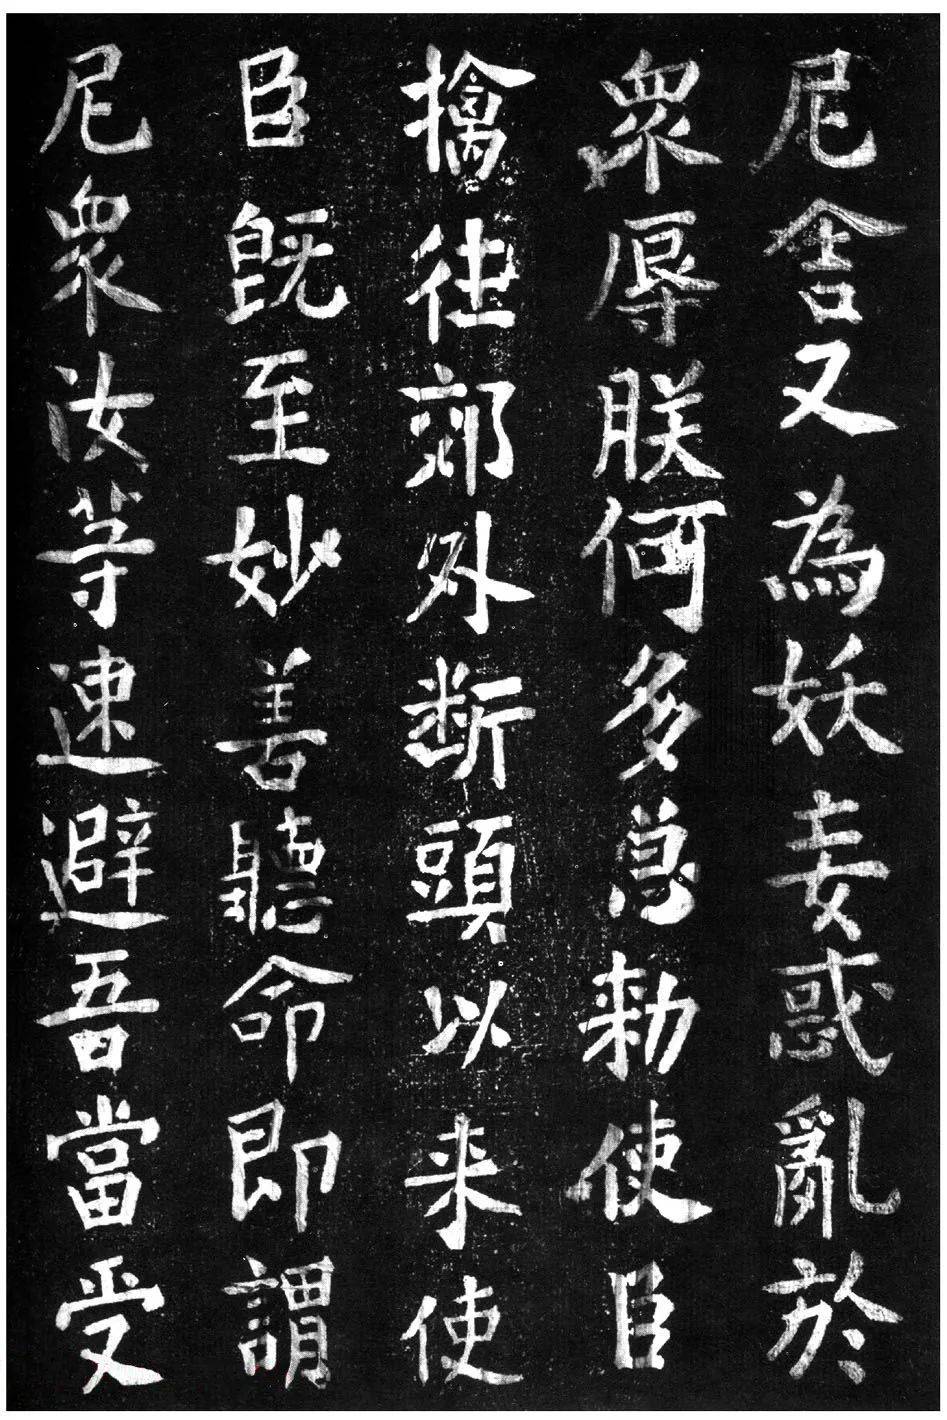 尼舍又為妖妄惑亂於
衆辱朕何多忿勑使臣
擒往郊外斷頭以来使
臣既至妙善聽命即謂
尼衆汝等速避吾當受